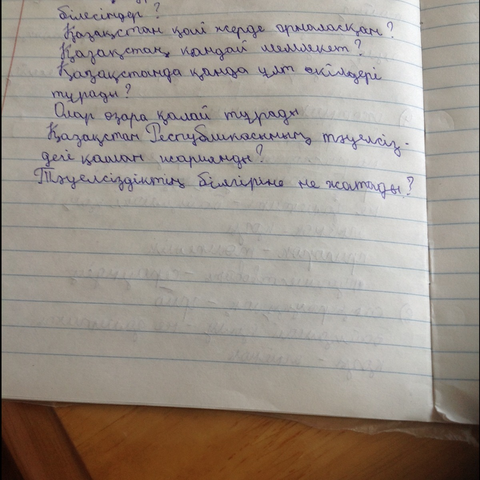 білесіңдер?
Қазақстан қай жерде орналасқан?
Қазақстан қандай мемлекет?
Қазақстанда қанда ұлт өкілдері
тұрады?
Олар өзара қалай тұрады
Қазақстан Республикасының тәуелсіз-
дегі қашан жарияланды?
Тәуелсіздіктің білгіріне не жатады?